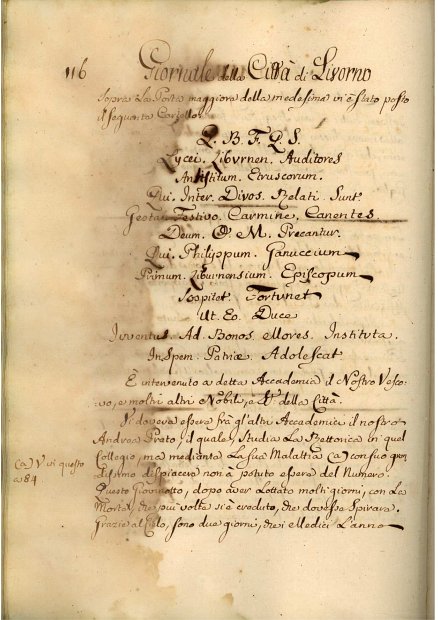 116 Giornale della Città di Livorno
Sopra La Porta maggiore della medesima in è stato posto
il seguente Cartello.
Q. B. F. Q. S.
Lycei. Liburnen. Auditores
Antistitum. Etruscorum.
Qui. Inter. Divos. Relati. Sunt.
Gesta. Festivo. Carmine. Canentes
Deum. O. M. Precantur.
Qui. Philippum. Ganuccium
Primum. Liburnensium. Episcopum
Sospitet. Fortunet
Ut. Eo. Duce
Iuventus. Ad. Bonos. Mores. Instituta.
In. Spem. Patriæ Adolescat
È intervenuto a detta Accademia il Nostro Vesco-
vo, e moltri altri Nobili, e della Città.
Vi doveva essere frà gl'altri Accademici il nostro
Andrea Prato, il quale Studia La Rettorica in quel
Collegio, ma mediante La Sua Malattia (a) con suo gran-
dissimo dispiacere non à potuto essere del Numero.
(a) V. in questo
a 84.
Questo Giovinotto, dopo aver Lottato molti giorni, con La
Morte, che più volte si è creduto, che dovesse Spirare.
Grazie al Cielo, sono due giorni, che i Medici L'anno